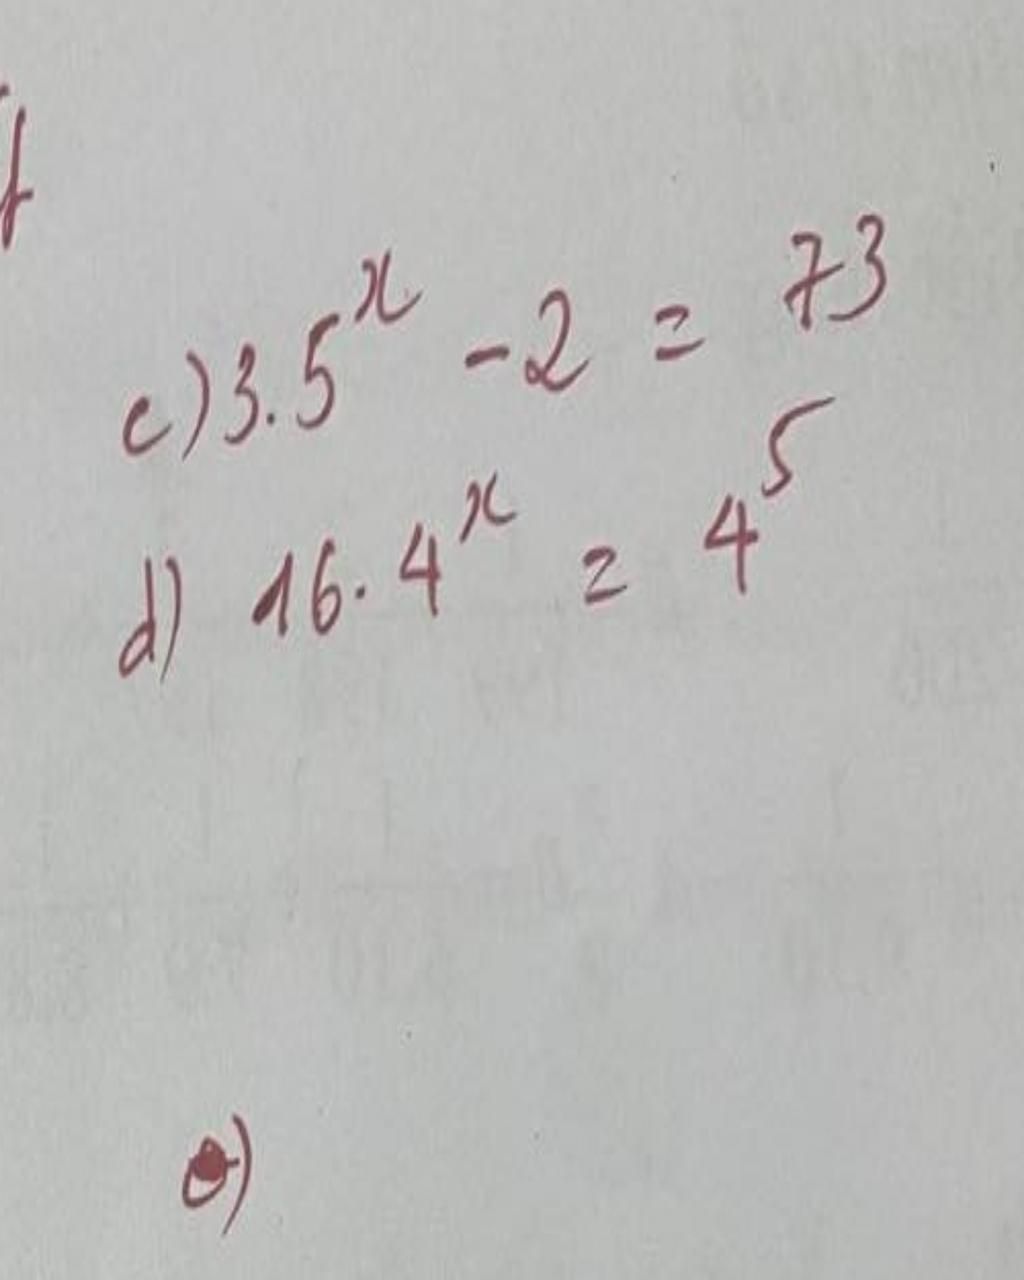 c) 3.5^x - 2 = 73
d) 16.4^x = 4^5
e)